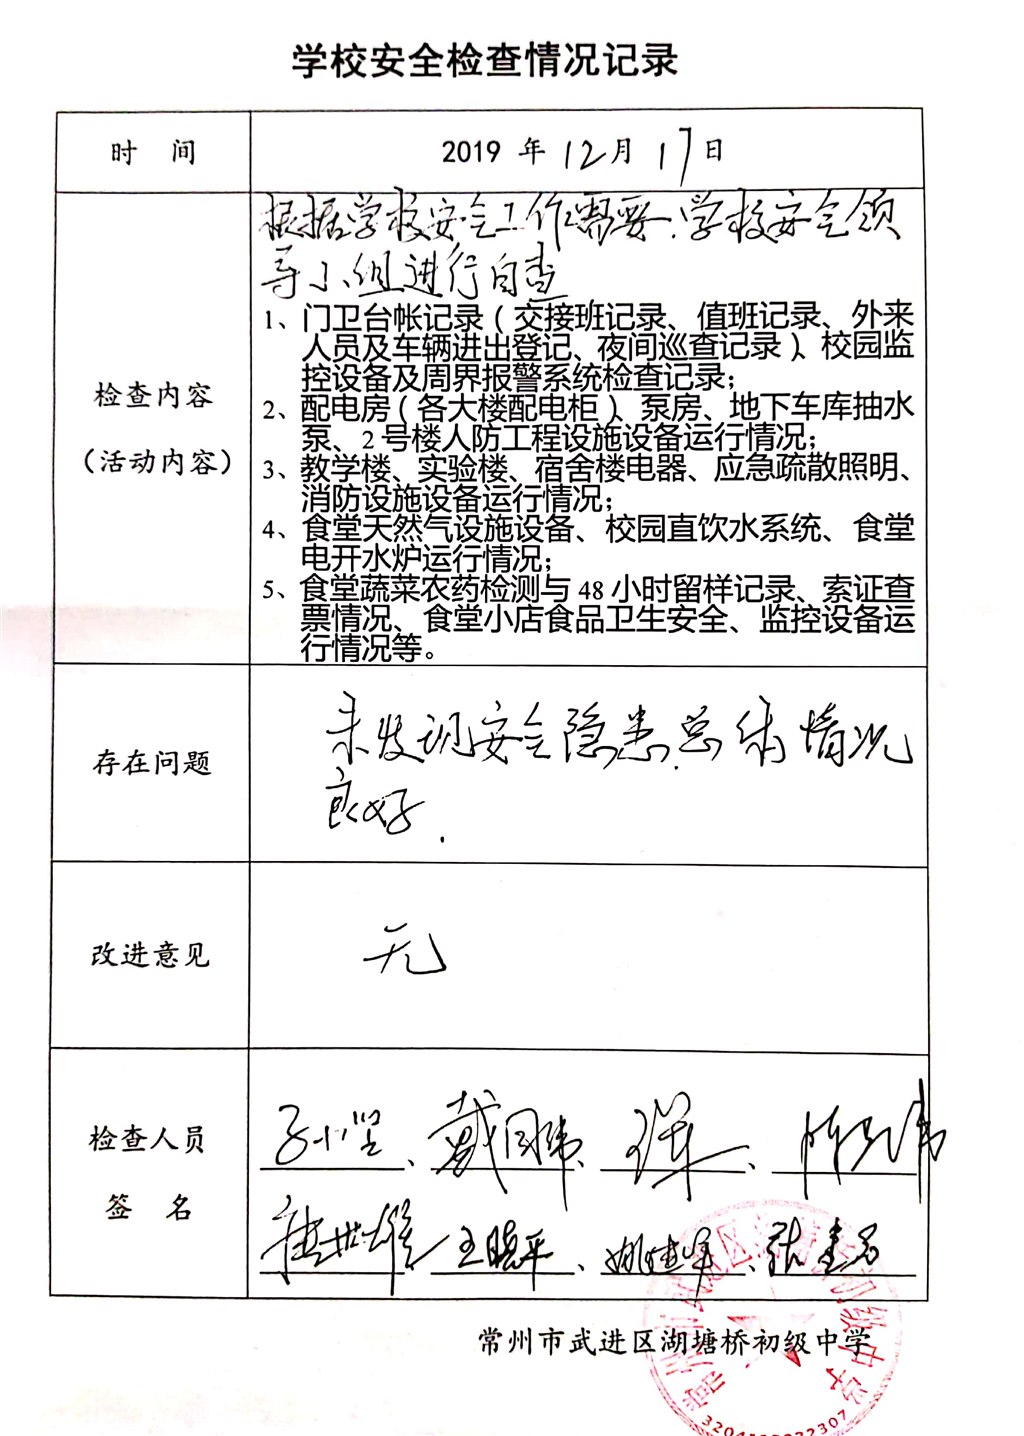 学校安全检查情况记录
时 间
2019 年 12月 17日
根据学校安全工作需要.学校安全领
导小组进行自查
检查内容
（活动内容）
1、门卫台帐记录（交接班记录、值班记录、外来
人员及车辆进出登记、夜间巡查记录）、校园监
控设备及周界报警系统检查记录；
2、配电房（各大楼配电柜）、泵房、地下车库抽水
泵、2 号楼人防工程设施设备运行情况；
3、教学楼、实验楼、宿舍楼电器、应急疏散照明、
消防设施设备运行情况；
4、食堂天然气设施设备、校园直饮水系统、食堂
电开水炉运行情况；
5、食堂蔬菜农药检测与 48 小时留样记录、索证查
票情况、食堂小店食品卫生安全、监控设备运
行情况等。
存在问题
未发现安全隐患.总体情况
良好.
改进意见
无
检查人员
签 名
戴国伟、
王晓平、姚建军、
常州市武进区湖塘桥初级中学